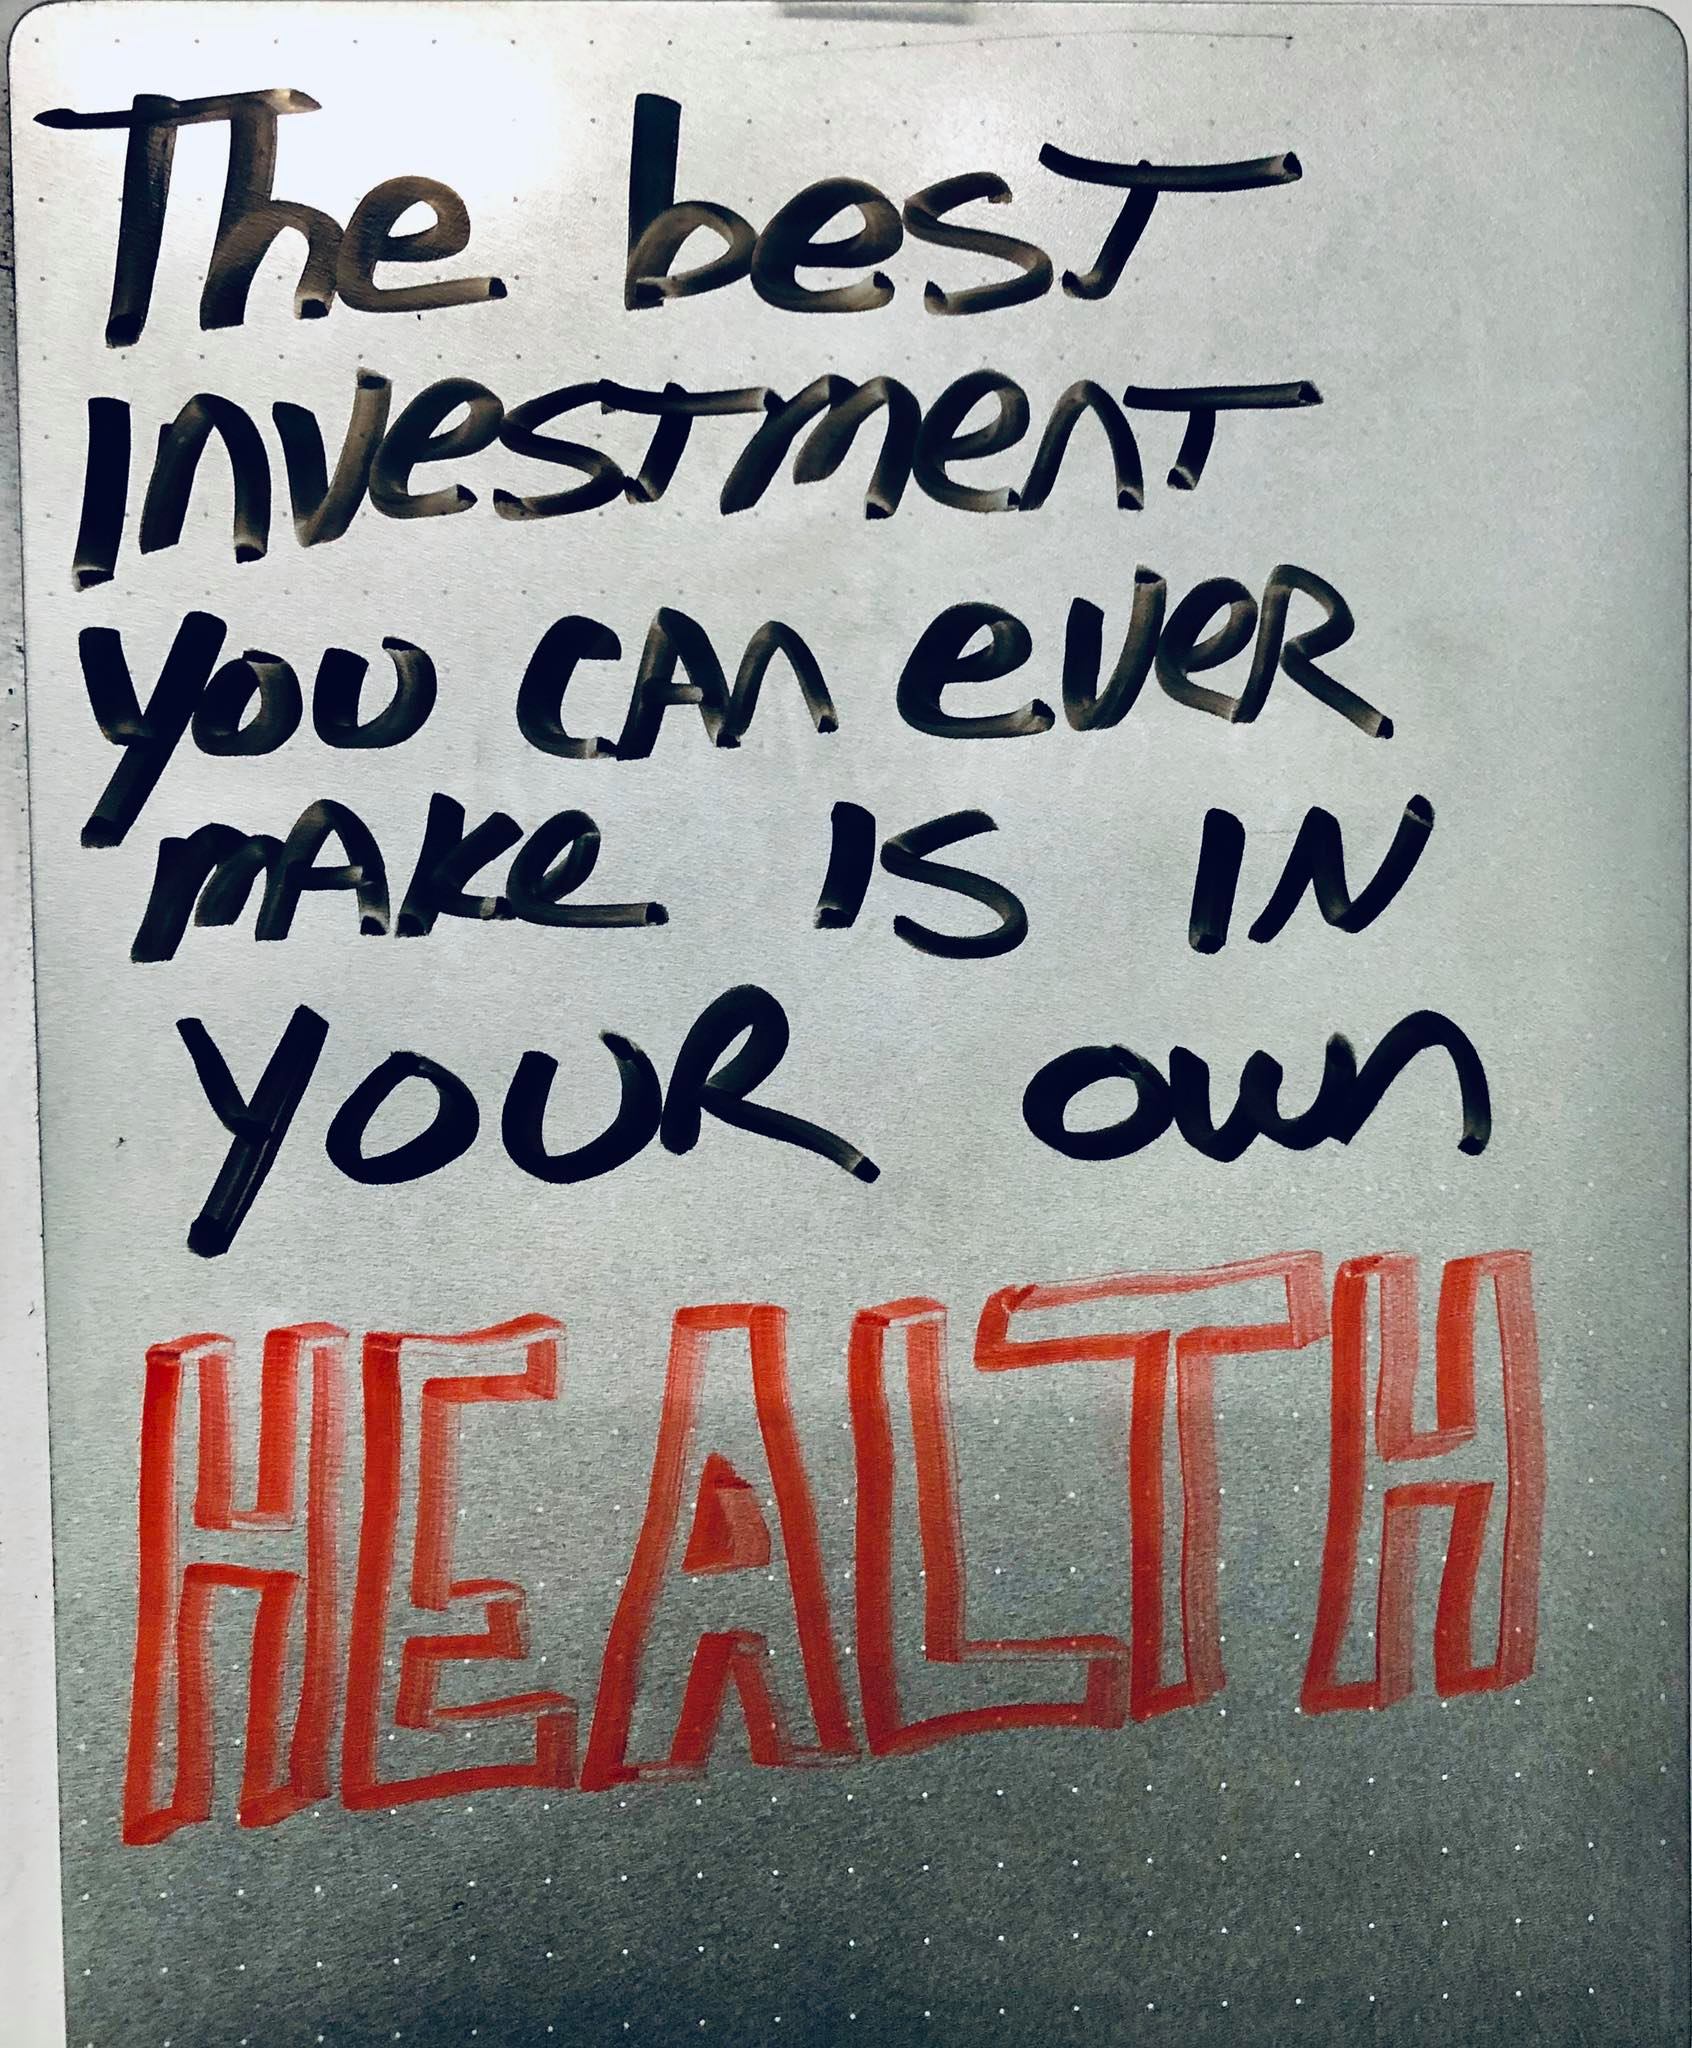 The besT
InvesTmenT
you cAn eveR
mAke IS IN
YOUR own
HEALTH